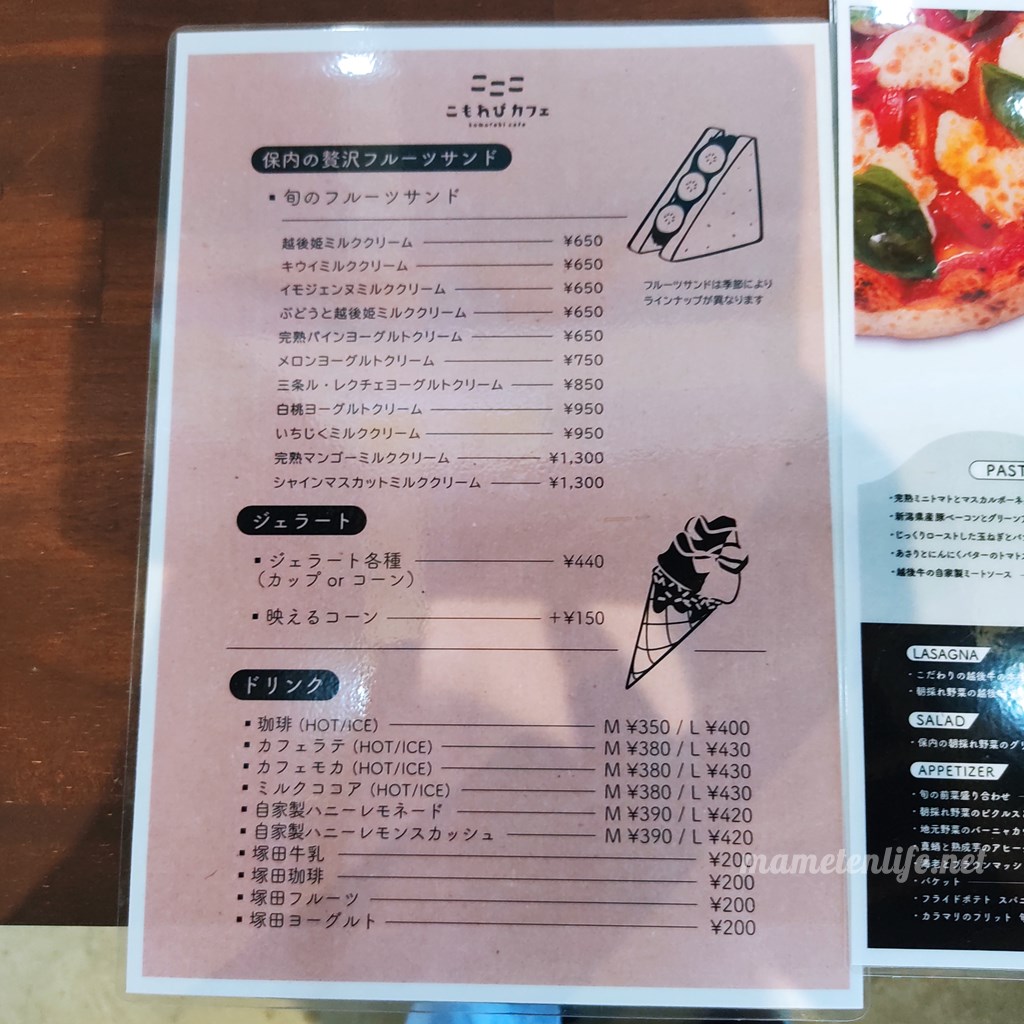 こもれびカフェ
komorebi cafe
保内の贅沢フルーツサンド
▪ 旬のフルーツサンド
越後姫ミルククリーム ¥650
キウイミルククリーム ¥650
イモジェンヌミルククリーム ¥650
ぶどうと越後姫ミルククリーム ¥650
完熟パインヨーグルトクリーム ¥650
メロンヨーグルトクリーム ¥750
三条ル・レクチェヨーグルトクリーム ¥850
白桃ヨーグルトクリーム ¥950
いちじくミルククリーム ¥950
完熟マンゴーミルククリーム ¥1,300
シャインマスカットミルククリーム ¥1,300
フルーツサンドは季節により
ラインナップが異なります
ジェラート
▪ ジェラート各種 ¥440
(カップ or コーン)
▪ 映えるコーン +¥150
ドリンク
▪ 珈琲 (HOT/ICE) M ¥350 / L ¥400
▪ カフェラテ (HOT/ICE) M ¥380 / L ¥430
▪ カフェモカ (HOT/ICE) M ¥380 / L ¥430
▪ ミルクココア (HOT/ICE) M ¥380 / L ¥430
▪ 自家製ハニーレモネード M ¥390 / L ¥420
▪ 自家製ハニーレモンスカッシュ M ¥390 / L ¥420
▪ 塚田牛乳 ¥200
▪ 塚田珈琲 ¥200
▪ 塚田フルーツ ¥200
▪ 塚田ヨーグルト ¥200
PAST
・完熟ミニトマトとマスカルポーネ
・新潟県産豚ベーコンとグリーン
・じっくりローストした玉ねぎとバ
・あさりとにんにくバターのトマト
・越後牛の自家製ミートソース
LASAGNA
・こだわりの越後牛の
・朝採れ野菜の越後
SALAD
・保内の朝採れ野菜のグリ
APPETIZER
・旬の前菜盛り合わせ
・朝採れ野菜のピクルス
・地元野菜のバーニャカ
・真蛸と熟成芋のアヒー
・海老とブラウンマッシ
・バケット
・フライドポテト スパニ
・カラマリのフリット
mametenlife.net